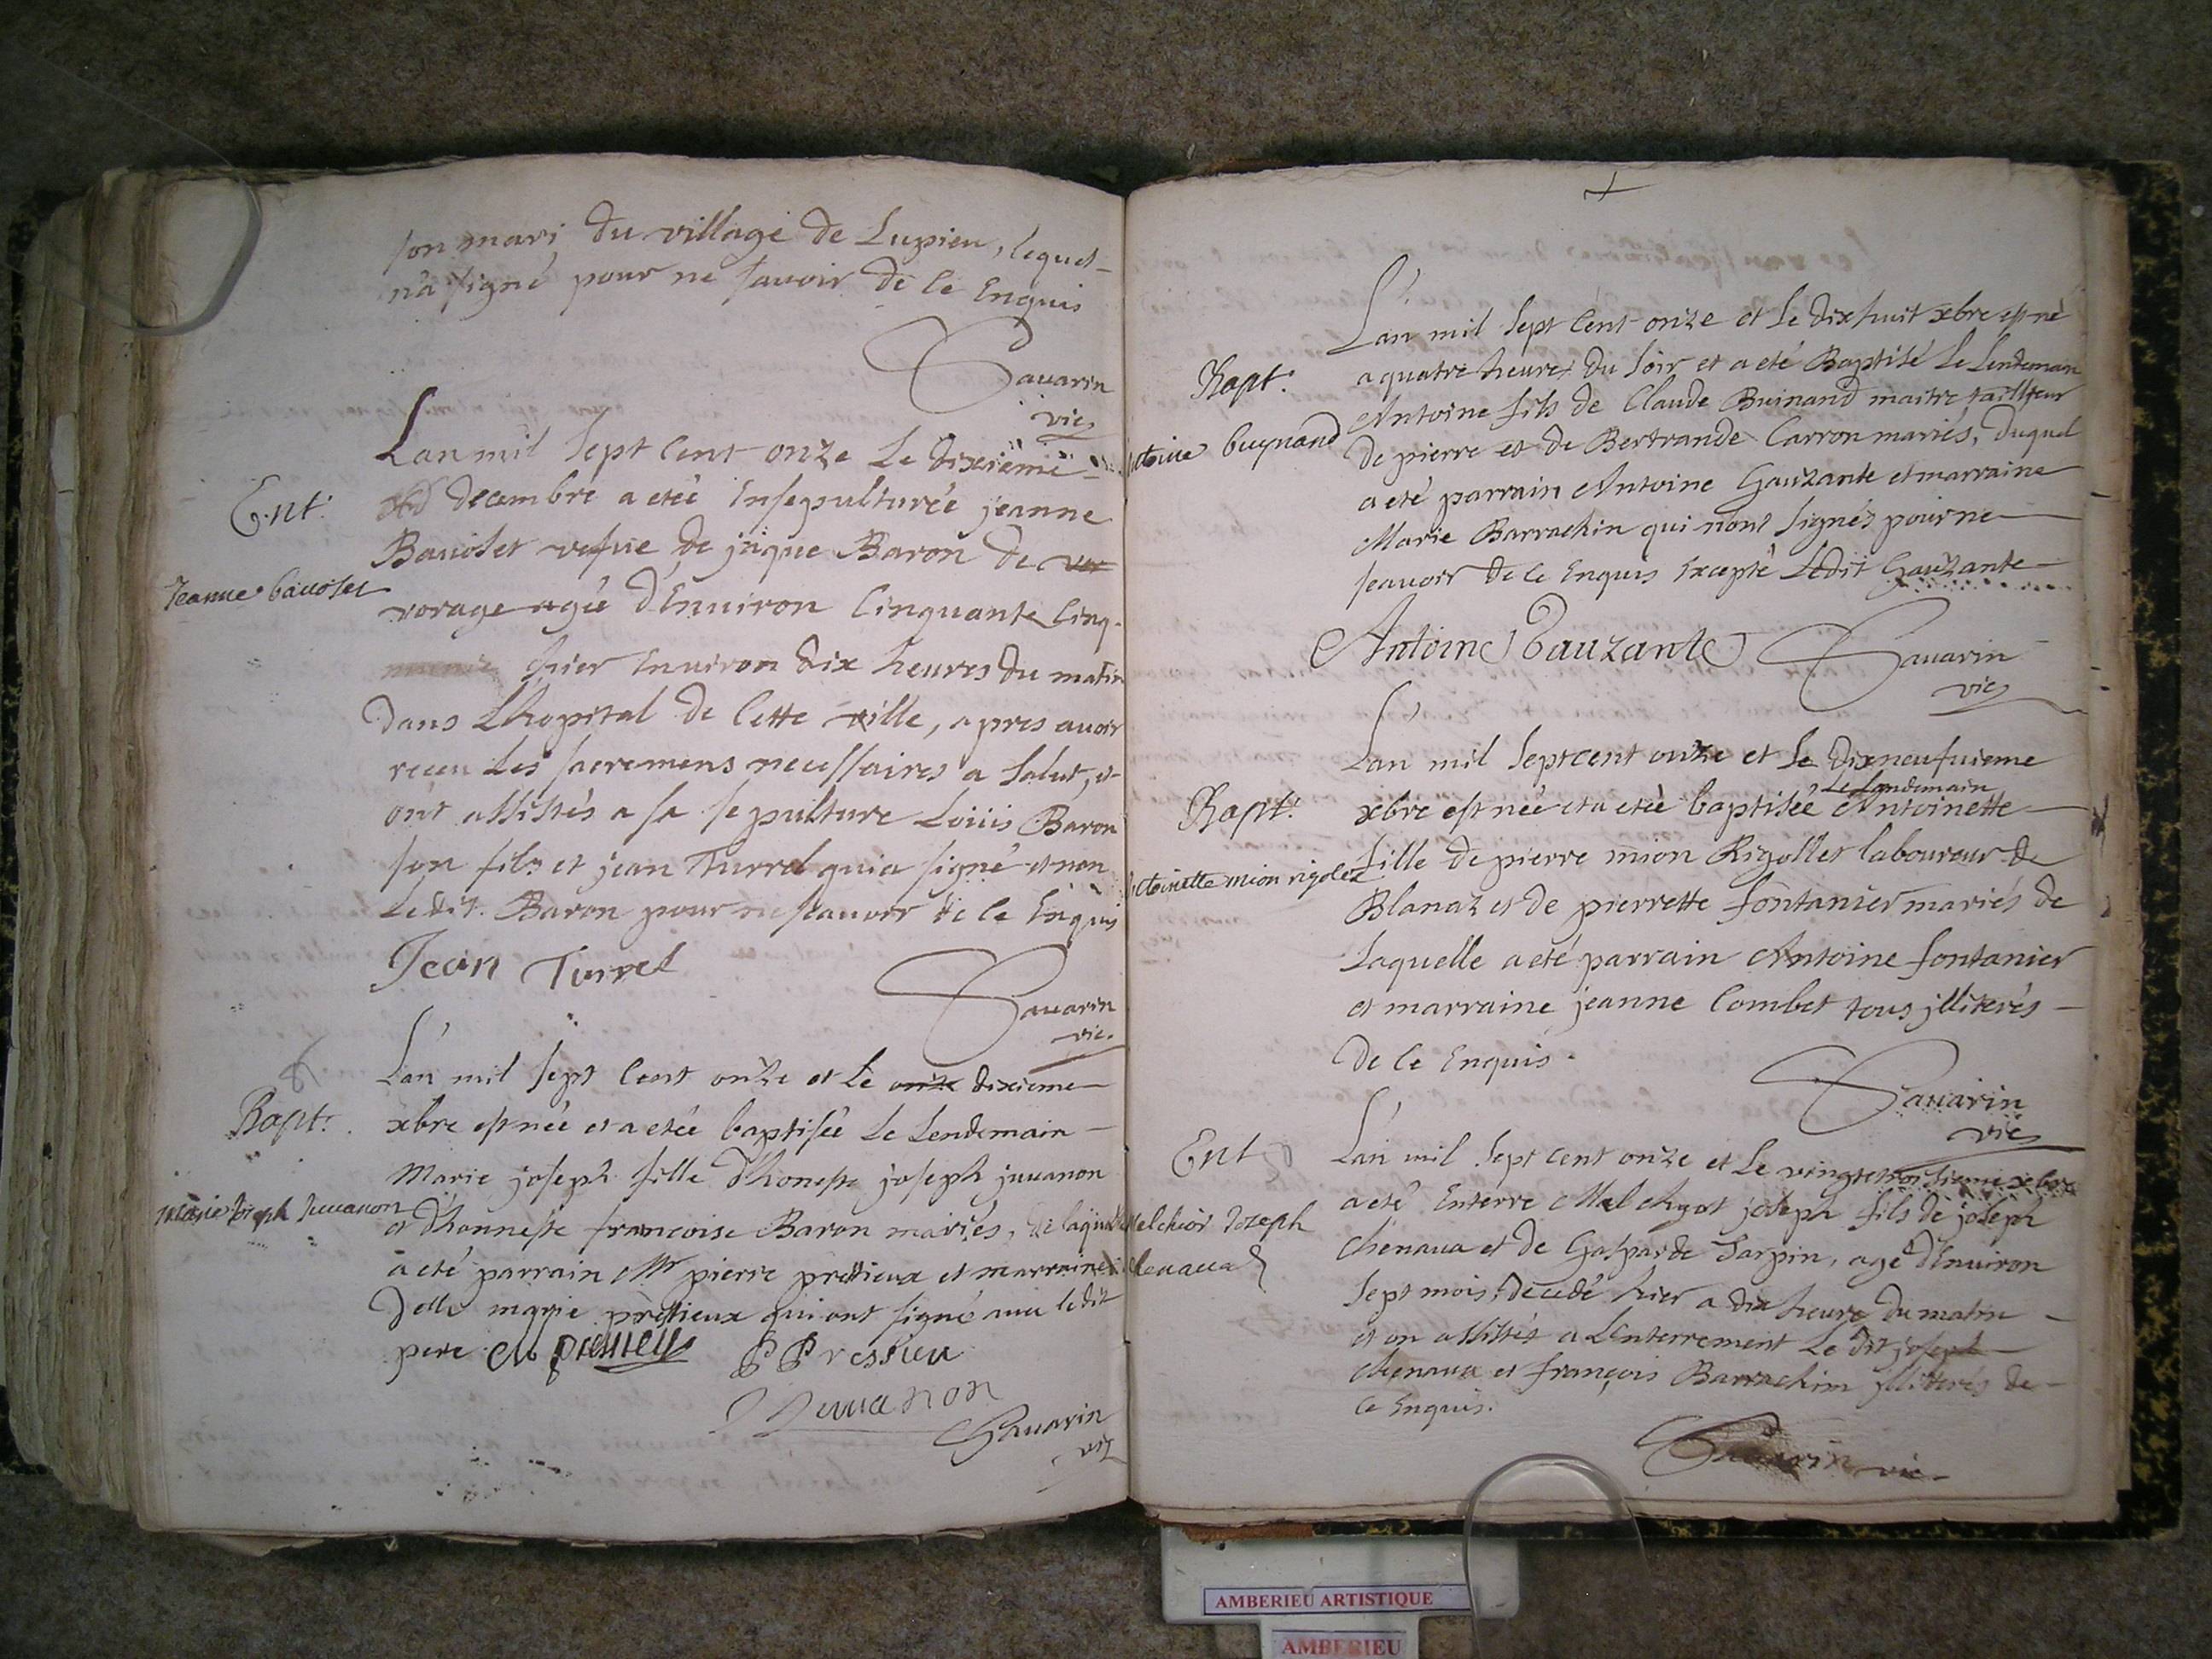 son mari du village de Lupieu, lequel
n'a signé pour ne savoir de ce Enquis
Sauarin
vic
Ent.
Jeanne bauolet
Lan mil sept cent onze Le dixieme
decembre a etéé Insepulturée jeanne
Bauolet vefue de jaque Baron de ver
vorage agée d'Enuiron Cinquante Cinq
hier Enuiron dix heures du matin
Dans Lhopital de Cette ville, apres auoir
receu Les sacremens necessaires a salut, et
ont assistés a sa sepulture Loüis Baron
son fils et jean Turrel qui a signé et non
Ledit Baron pour ne scauoir de ce Enquis
Jean Turrel
Sauarin
vic.
Bapt.
Marie Joseph Juuanon
L'an mil sept Cent onze et Le onze dixieme
xbre est née et a etéé baptisée Le Lendemain
Marie joseph fille d'honeste joseph juuanon
et d'honneste francoise Baron mariés, de laquelle
a eté parrain Mr pierre pressieux et marraine
Delle marie pressieux qui ont signé auec ledit
pere M pressieu PPressieu
J Juuanon
Sauarin
vic
+
Bapt.
Antoine buynand
L'an mil sept Cent onze et Le dix huit xbre est né
a quatre heures du soir et a eté Baptisé Le Lendemain
Antoine fils de Claude Buinand maitre tailleur
de pierre et de Bertrande Carron mariés, duquel
a eté parrain Antoine Gauzante et marraine
Marie Barrachin qui n'ont signés pour ne
scauoir de ce Enquis Excepté Ledit Gauzante
Antoine Gauzante Sauarin
vic
Bapt.
Antoinette mion rigolet
L'an mil sept cent onze et Le dixneufuieme
Le Landemain
xbre est née et a etéé baptisée Antoinette
fille de pierre mion Rigollet laboureur de
Blanaz et de pierrette fontanier mariés de
Laquelle a eté parrain Antoine fontanier
et marraine jeanne Combet tous jlliterés
de ce Enquis.
Sauarin
vic
Ent
Melchior Jozeph
chenaua
L'an mil sept cent onze et Le vingt troisieme xbre
a eté Enterré Melchyor joseph fils de joseph
chenaua et de Gasparde Tarpin, agé d'Enuiron
sept mois, decedé hier a dix heure du matin
et on assistés a Lenterrement Le dit joseph
chenaua et françois Barrachin jlliterés de
ce Enquis.
Sauarin vic
AMBERIEU ARTISTIQUE
AMBERIEU